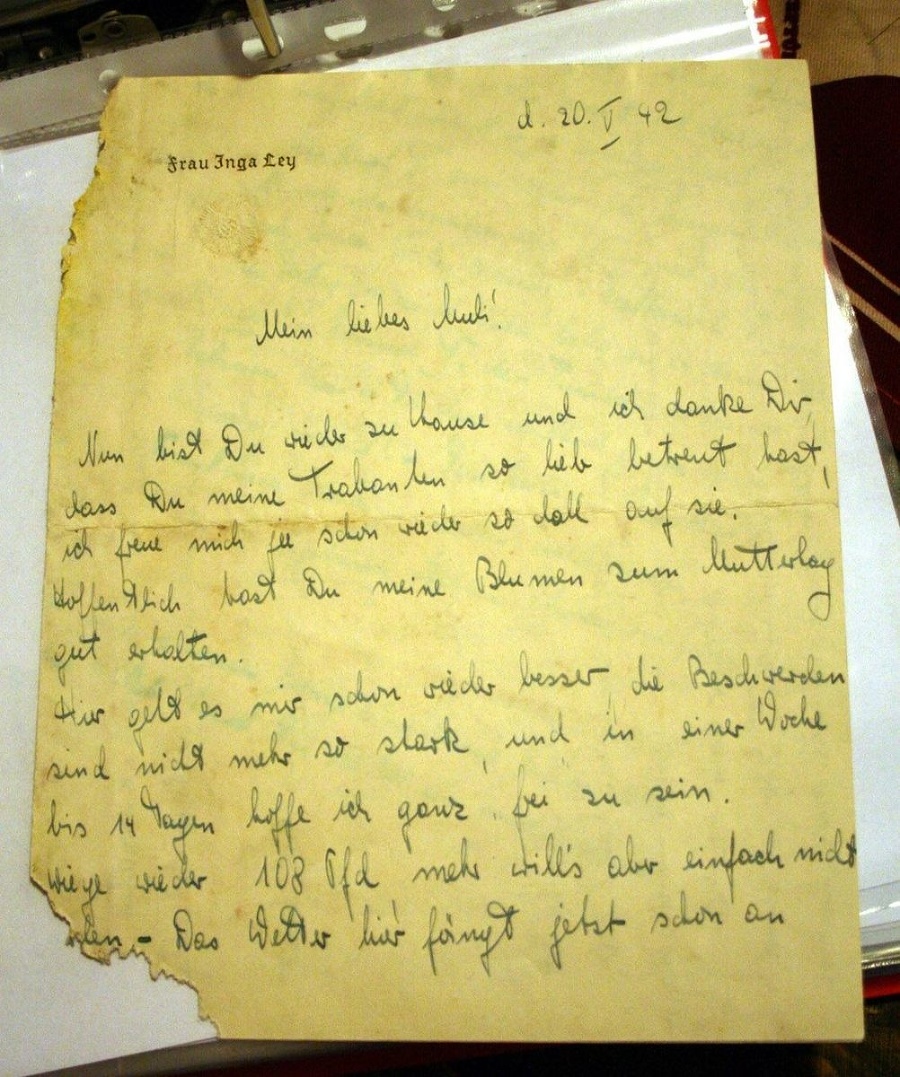 d. 20. V 42
Frau Inga Ley
Mein liebes Muli!
Nun bist Du wieder zu Hause und ich danke Dir,
dass Du meine Trabanten so lieb betreut hast,
ich freue mich je schon wieder so doll auf sie.
Hoffentlich hast Du meine Blumen zum Muttertag
gut erhalten.
Hier geht es mir schon wieder besser, die Beschwerden
sind nicht mehr so stark, und in einer Woche
bis 14 Tagen hoffe ich ganz frei zu sein.
wiege wieder 108 Pfd mehr will's aber einfach nicht
- Das Wetter hier fängt jetzt schon an